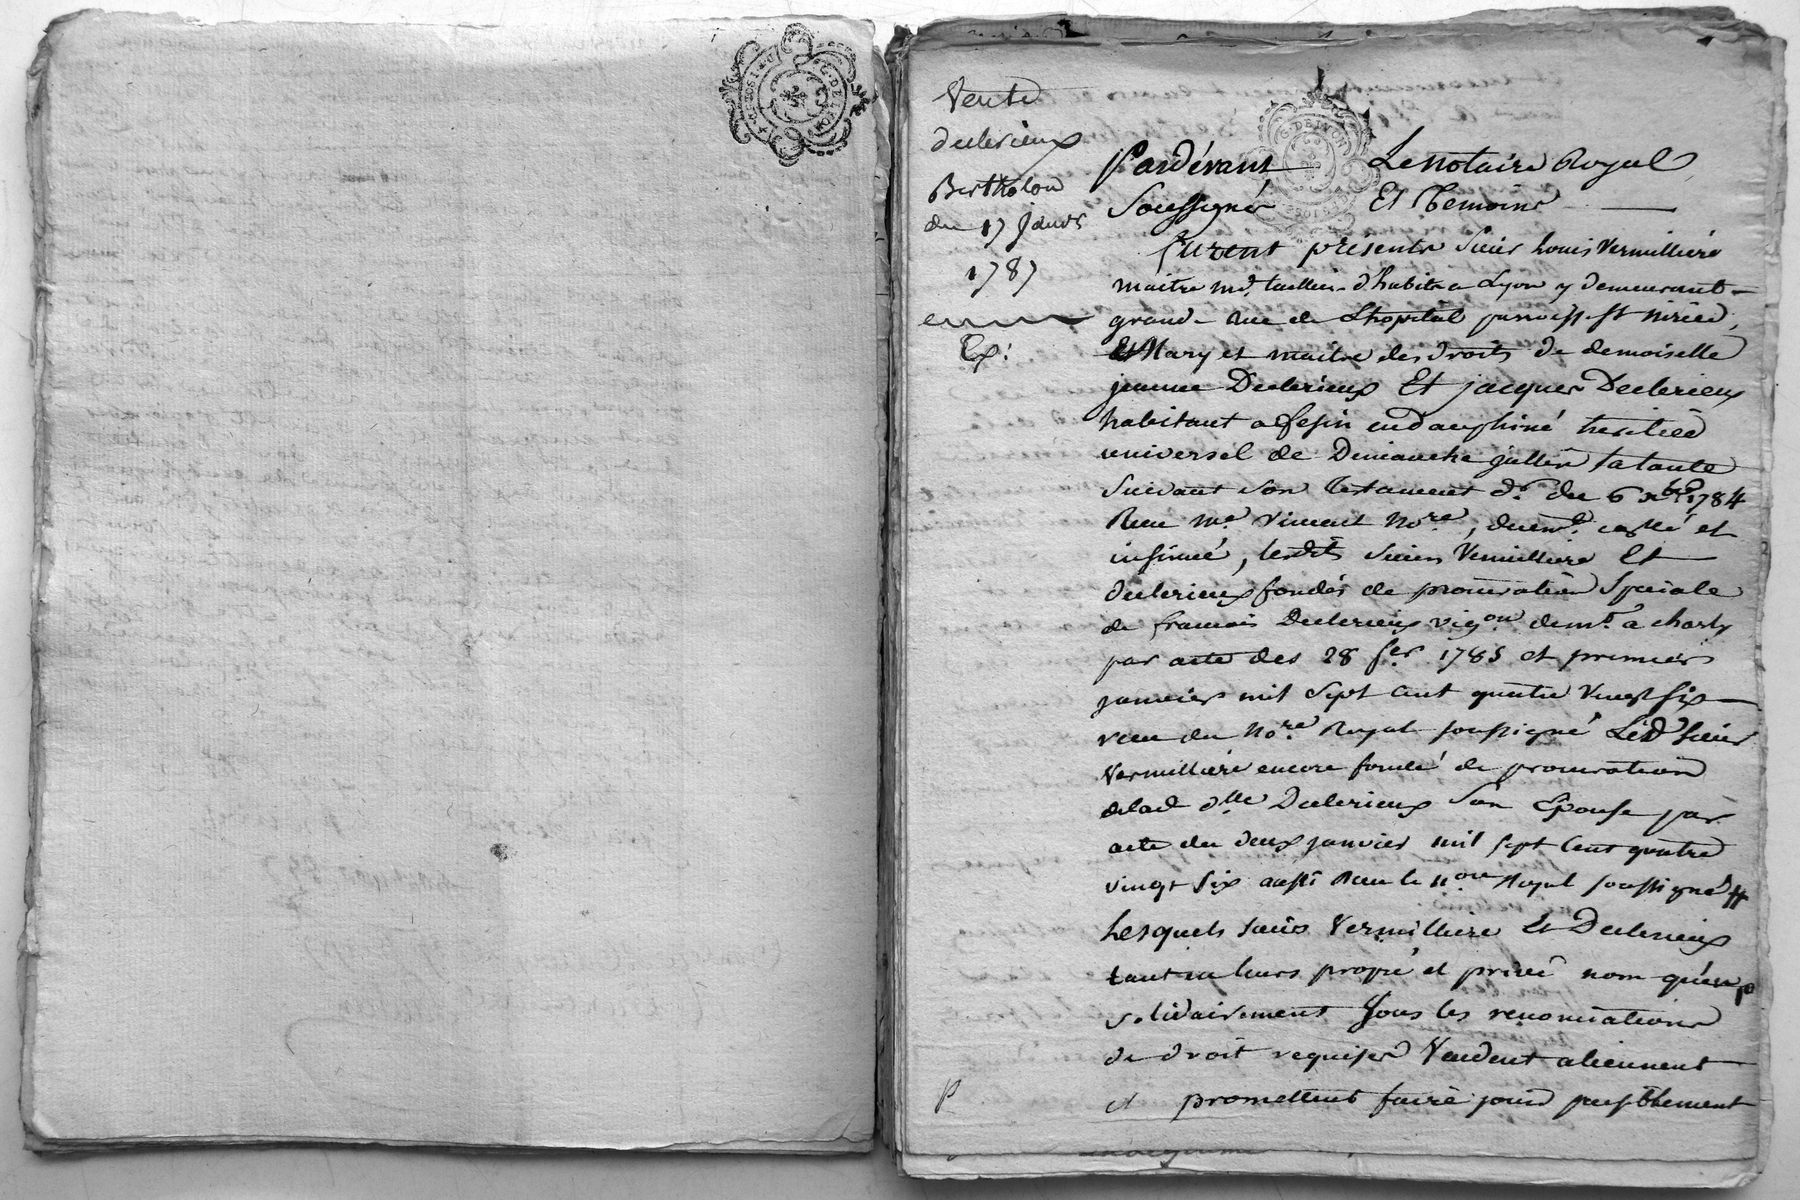 Vente
declerieux
Bertholon
du 17 janvr
1787
Ex:
G. DE LYON
Pardévant Le notaire Royal
Soussigné Et Temoins
furent présents Sieur Louis Vermilliere
maitre md. tailleur d'habits a Lyon y demeurant
grande Rue de Lhopital paroisse St nizier,
Mary et maitre des droits de demoiselle
jeanne Declerieux Et jacques Declerieux
habitant a fesin en dauphiné heritier
universel de Dimanche jullien sa tante
suivant son testament du 6 1784
Recu me. Vincent nore, duemt. collé et
insinué, lesdits Sieurs Vermilliere Et
declerieux fondés de procuration Speciale
de francois Declerieux vigon demt. a charly
par acte des 28 1785 et premier
janvier mil Sept cent quatre Vingt six
recu du nore Royal soussigné Ledt Sieur
Vermilliere encore fondé de procuration
delad dlle Declerieux Son Epouse par
acte du deux janvier mil sept Cent quatre
vingt Six aussi Recu le nore Royal soussigné
Lesquels Sieurs Vermilliere Et Declerieux
tant en leurs propre et privé nom qu'en
solidairement sous les renonciations
de droit requises Vendent alienent
P et promettent faire jouir paisiblement